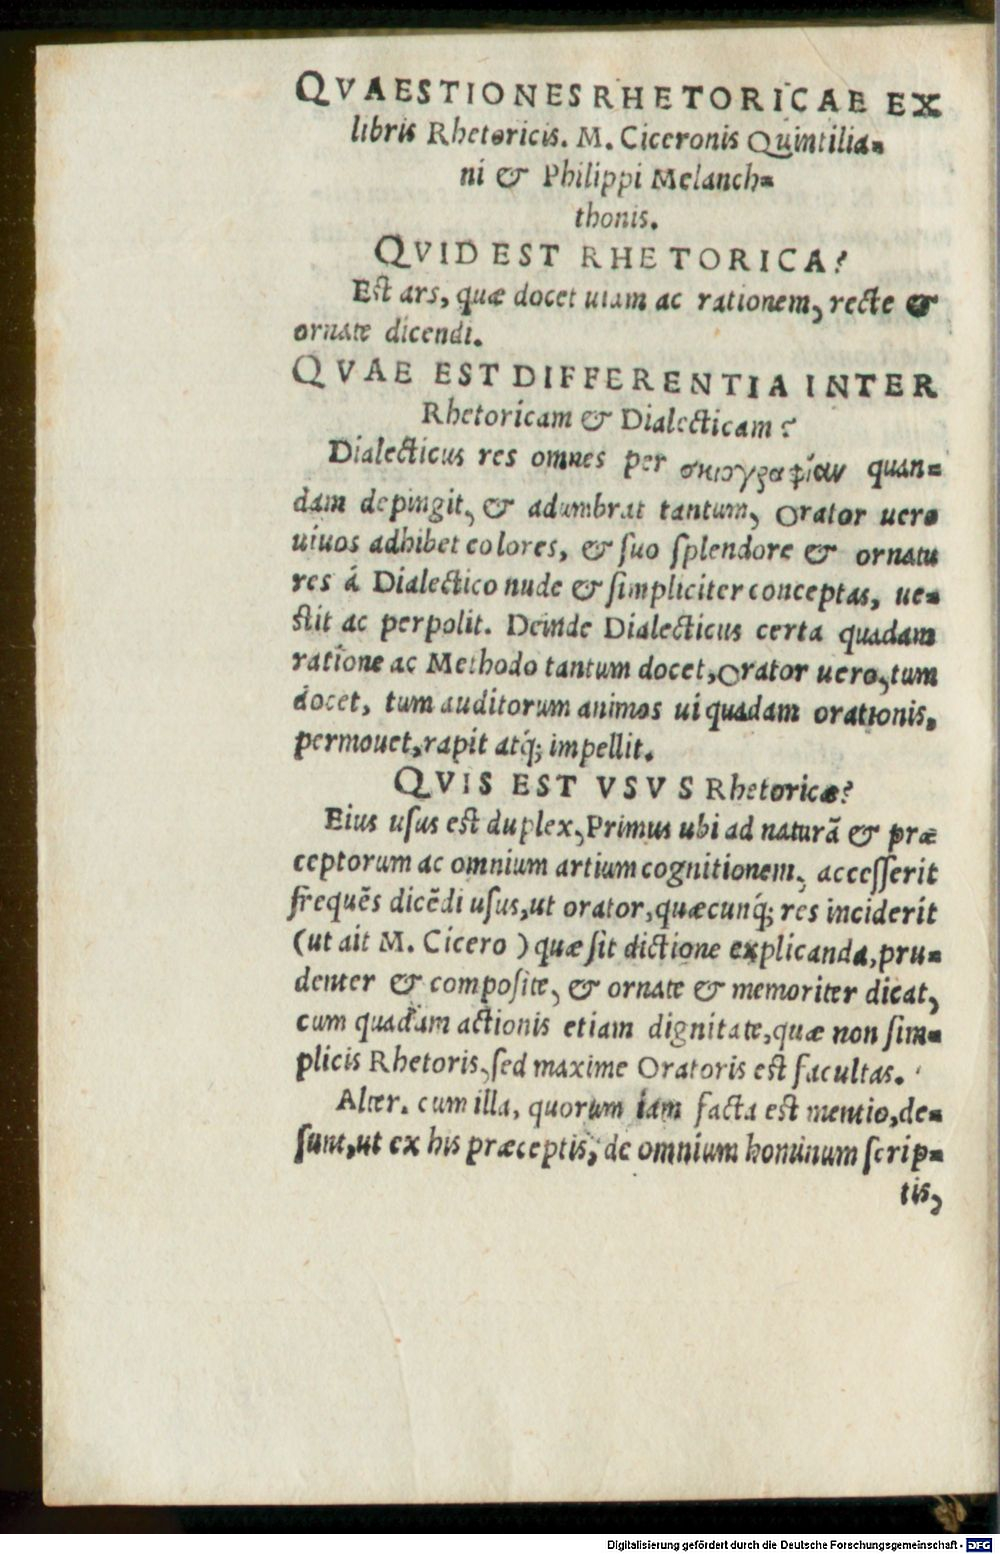 QVAESTIONES RHETORICAE EX
libris Rhetoricis. M. Ciceronis Quintilia-
ni & Philippi Melanch-
thonis.
QVID EST RHETORICA?
Est ars, quæ docet uiam ac rationem, recte &
ornate dicendi.
QVAE EST DIFFERENTIA INTER
Rhetoricam & Dialecticam?
Dialecticus res omnes per σκιογραφίαν quan-
dam depingit, & adumbrat tantum, Orator uero
uiuos adhibet colores, & suo splendore & ornatu
res á Dialectico nude & simpliciter conceptas, ue-
stit ac perpolit. Deinde Dialecticus certa quadam
ratione ac Methodo tantum docet, Orator uero, tum
docet, tum auditorum animos ui quadam orationis,
permouet, rapit atq́; impellit.
QVIS EST VSVS Rhetoricæ?
Eius usus est duplex, Primus ubi ad naturã & præ
ceptorum ac omnium artium cognitionem, accesserit
frequẽs dicẽdi usus, ut orator, quæcunq́; res inciderit
(ut ait M. Cicero ) quæ sit dictione explicanda, pru-
denter & composite, & ornate & memoriter dicat,
cum quadam actionis etiam dignitate, quæ non sim-
plicis Rhetoris, sed maxime Oratoris est facultas.
Alter. cum illa, quorum iam facta est mentio, de-
sunt, ut ex his præceptis, de omnium hominum scrip-
tis,
Digitalisierung gefördert durch die Deutsche Forschungsgemeinschaft - DFG